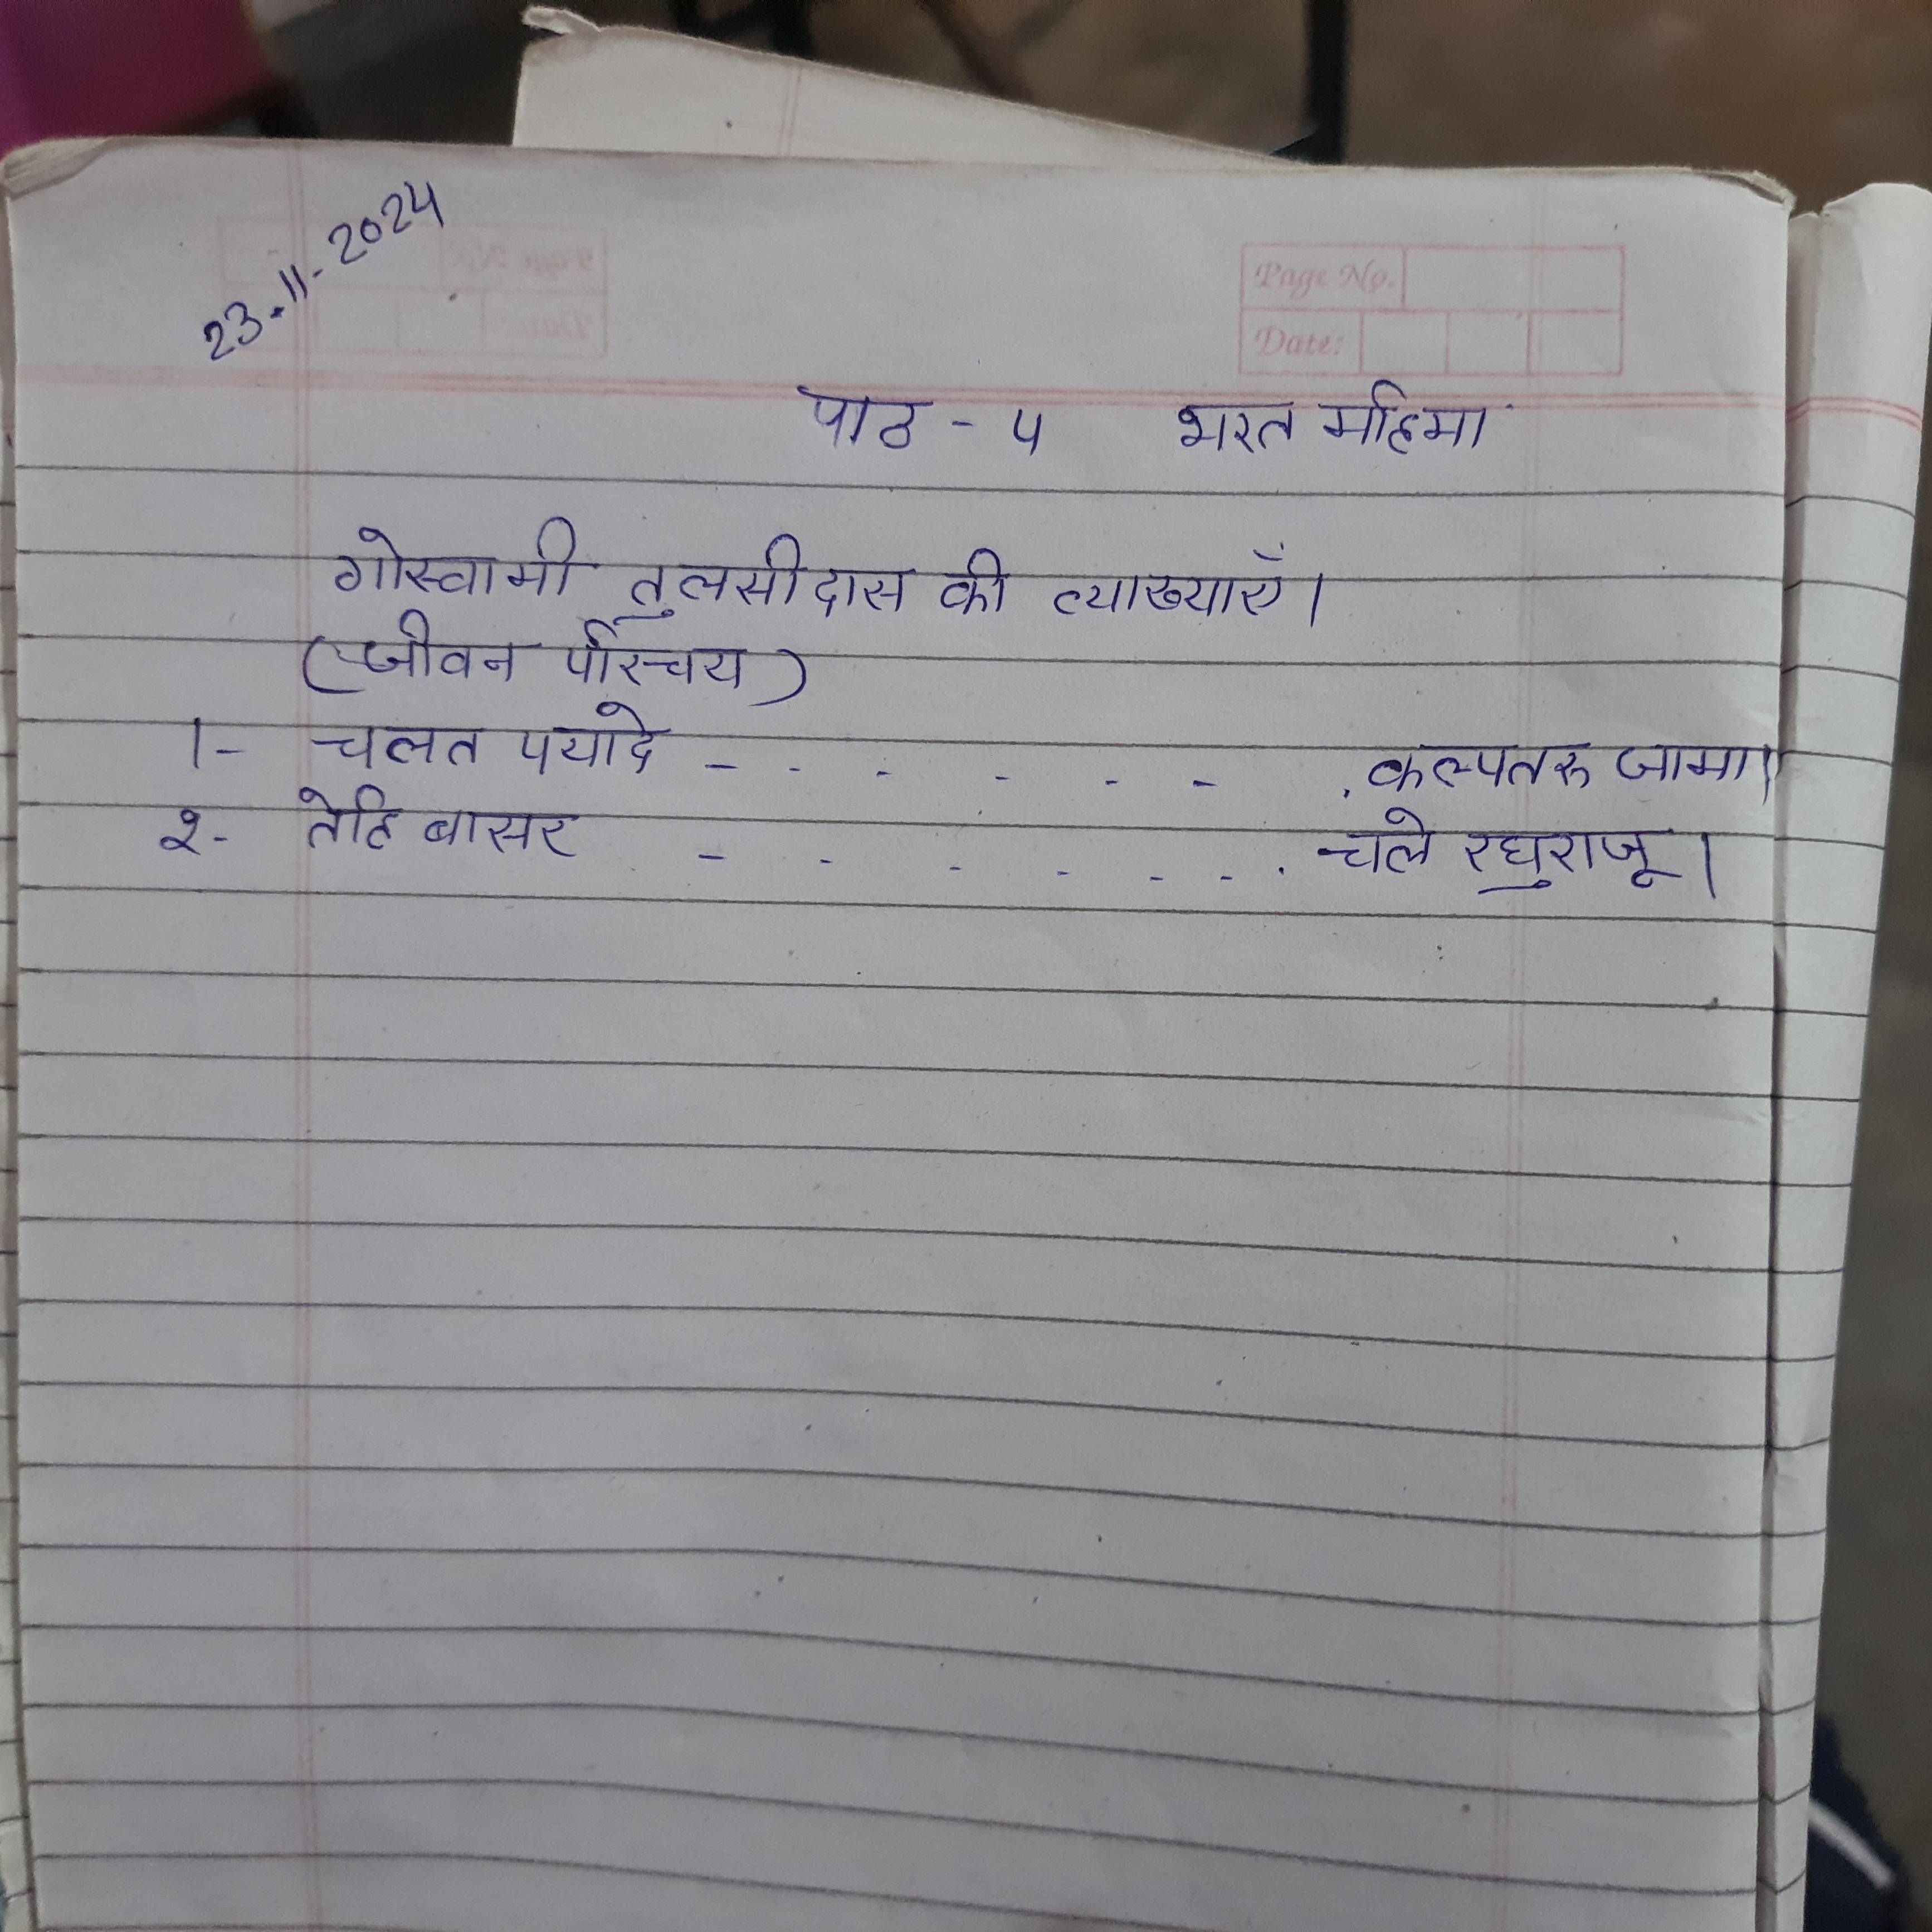 23-11-2024
Page No.
Date:
पाठ - ५ भरत महिमा
गोस्वामी तुलसीदास की व्याख्याएँ।
(जीवन परिचय)
1- चलत पयादे - - - - - - . कल्पतरु जामा।
२- तेहि बासर - - - - - - . चले रघुराजू।